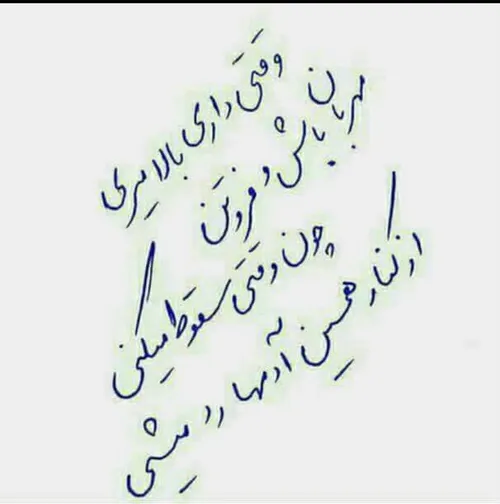 وقتی داری بالا میری
مهربان باش و فروتن
چون وقتی سقوط میکنی
از کنار همین آدمها رد میشی